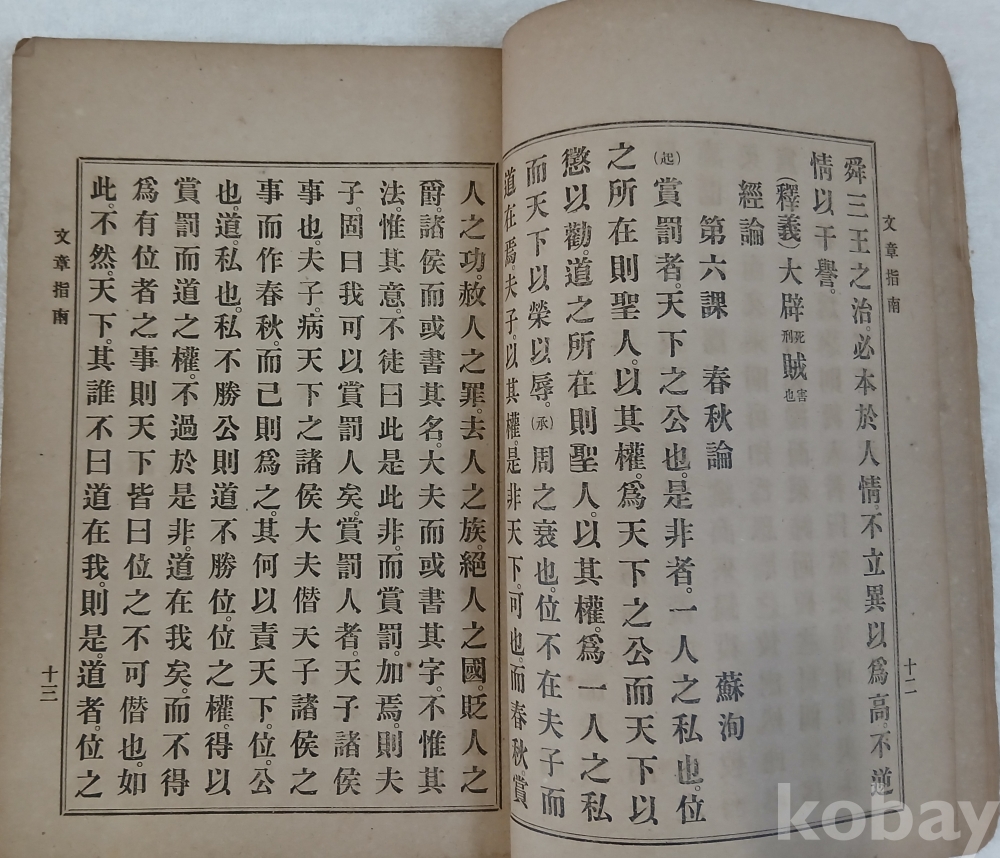 文章指南
十二
舜三王之治。必本於人情。不立異以爲高。不逆
情以干譽。
(釋義)大辟死刑賊害也
經論
第六課 春秋論 蘇洵
(起)賞罰者。天下之公也。是非者。一人之私也。位
之所在則聖人。以其權。爲天下之公而天下以
懲以勸。道之所在則聖人。以其權。爲一人之私
而天下以榮以辱。(承)周之衰也。位不在夫子而
道在焉。夫子。以其權。是非天下。可也。而春秋賞
人之功。赦人之罪。去人之族。絕人之國。貶人之
爵。諸侯而或書其名。大夫而或書其字。不惟其
法。惟其意。不徒曰此是此非。而賞罰。加焉。則夫
子。固曰我可以賞罰人矣。賞罰人者。天子諸侯
事也。夫子。病天下之諸侯大夫僭天子諸侯之
事而作春秋。而己則爲之。其何以責天下。位。公
也。道。私也。私不勝公則道不勝位。位之權。得以
賞罰而道之權。不過於是非。道在我矣。而不得
爲有位者之事則天下皆曰位之不可僭也。如
此。不然。天下。其誰不曰道在我。則是。道者。位之
文章指南
十三
kobay